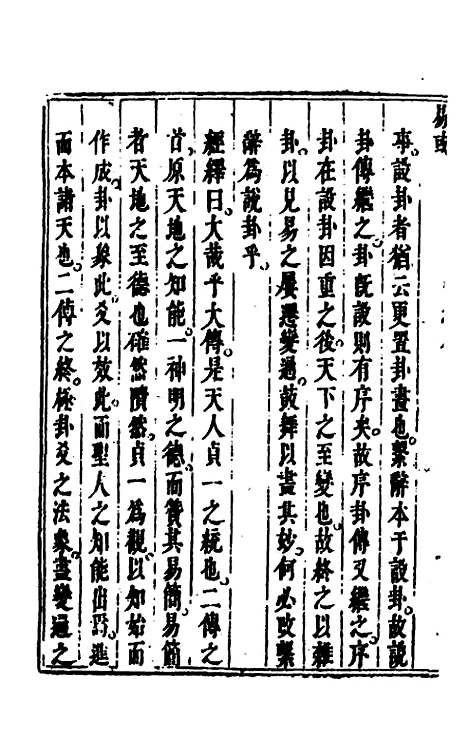 事設卦者猶云更置卦畫也繫辭本于設卦故說
卦傳繼之卦旣設則有序矣故序卦傳又繼之序
卦在設卦因重之後天下之至變也故終之以雜
卦以見易之屢遷變通鼓舞以盡其妙何必改繫
辭爲說卦乎
經繹曰大哉乎大傳是天人貞一之統也二傳之
首原天地之知能一神明之德而贊其易簡易簡
者天地之至德也確然隤然貞一爲觀以知始而
作成卦以象此爻以效此而聖人之知能出焉進
而本諸天也二傳之終極卦爻之法象盡變通之